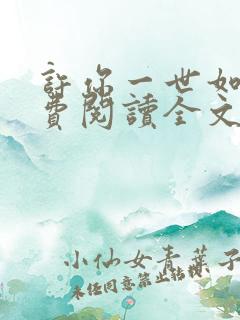 許你一世如
費閱讀全文
小仙女青葉子
未經同意禁止轉載